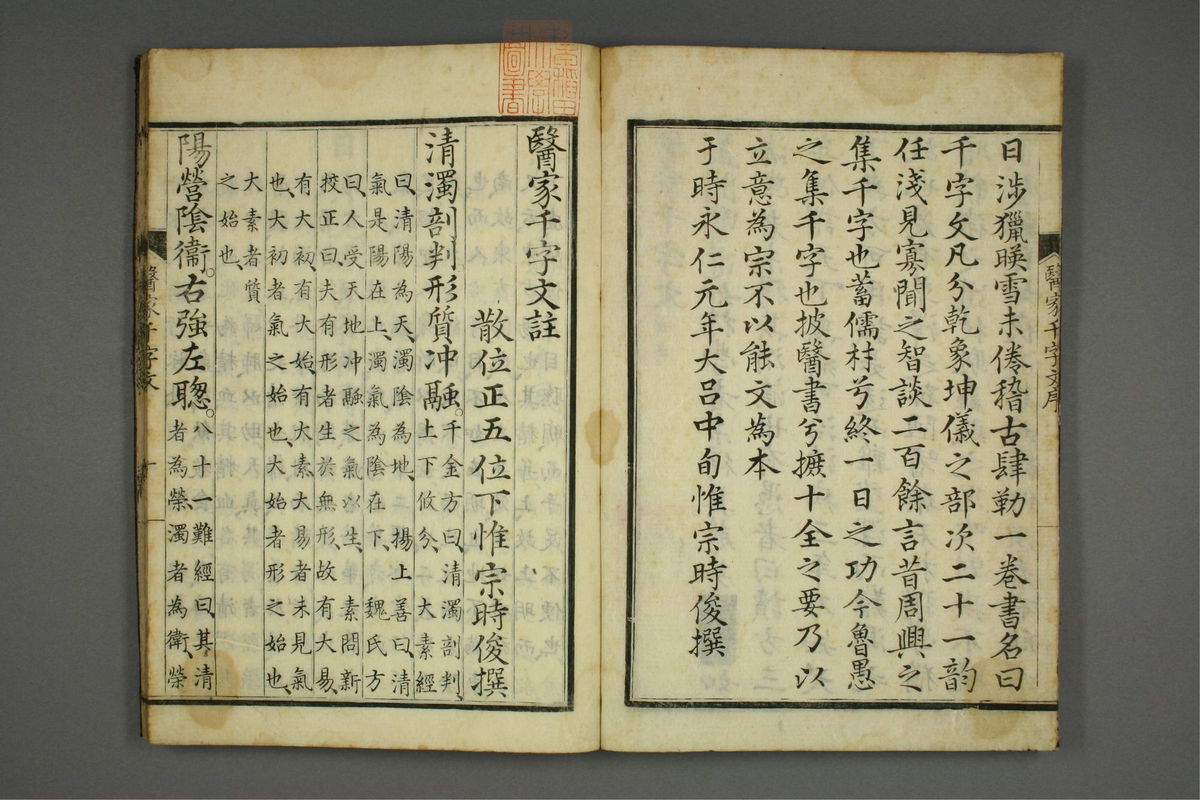 日涉獵暎雪未倦稽古肆勒一卷書名曰
千字文凡分乾象坤儀之部次二十一韵
任淺見寡聞之智談二百餘言昔周興之
集千字也蓄儒材兮終一日之功今魯愚
之集千字也披醫書兮摭十全之要乃以
立意為宗不以能文為本
于時永仁元年大呂中旬惟宗時俊撰
醫家千字文序
醫家千字文註
散位正五位下惟宗時俊撰
清濁剖判形質冲融。千金方曰、清濁剖判、
上下攸分、大素經
曰、清陽為天、濁陰為地、楊上善曰、清
氣是陽在上、濁氣為陰在下、魏氏方
曰、人受天地冲融之氣以生、素問新
校正曰、夫有形者生於無形、故有大易、
有大初、有大始、有大素、大易者未見氣
也、大初者氣之始也、大始者形之始也、
大素者質
之始也、
陽營陰衞。右強左聰。八十一難經曰、其清
者為榮、濁者為衛、榮
醫家千字文
一
早稻田大學圖書